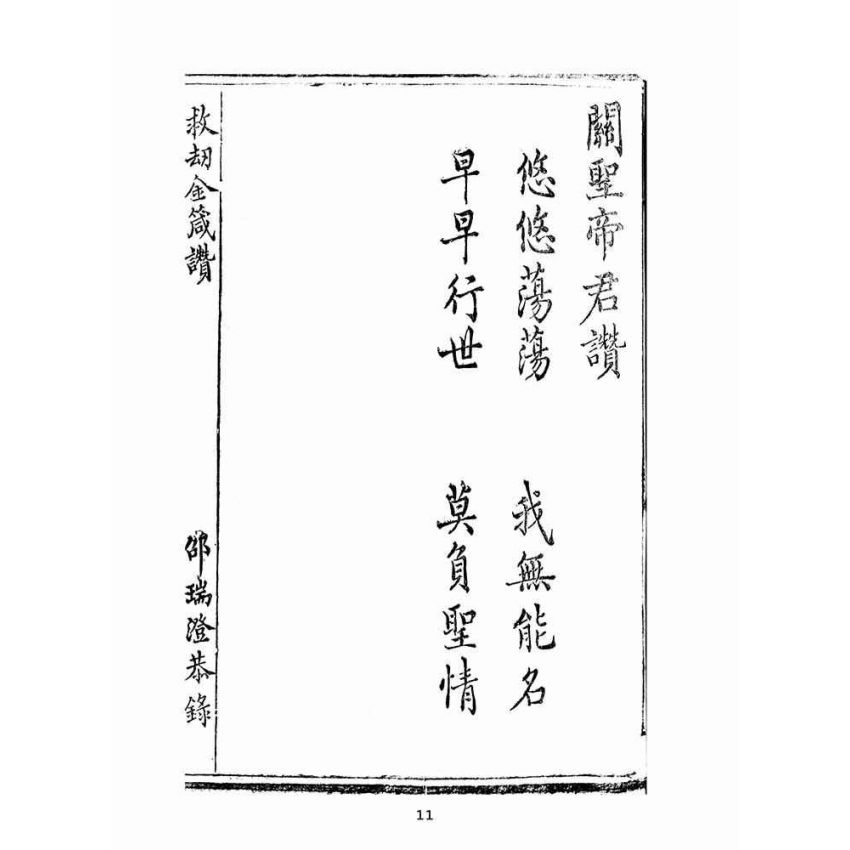 關聖帝君讚
悠悠蕩蕩 我無能名
早早行世 莫負聖情
救劫金箴讚 邵瑞澄恭錄
11